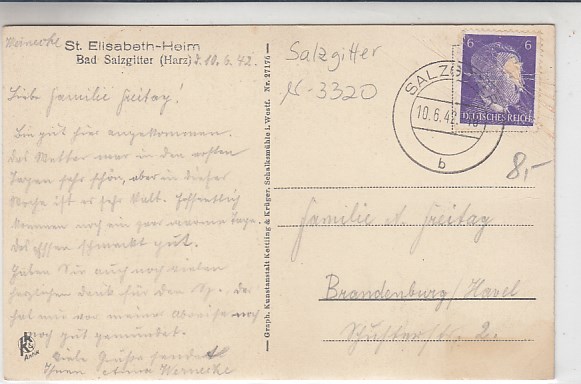 St. Elisabeth-Heim
Bad Salzgitter (Harz), d. 10.6.42.
Liebe Familie Freitag!
Bin gut hier angekommen.
Das Wetter war in den ersten
Tagen sehr schön, aber in dieser
Woche ist es sehr kalt. Hoffentlich
kommen noch ein paar warme Tage.
Das Essen schmeckt gut.
Haben Sie auch noch vielen
herzlichen Dank für den Sp., der
hat mir vor meiner Abreise noch
noch gut gemundet.
Viele Grüße sendet
Ihnen Anna Wernecke
Graph. Kunstanstalt Kettling & Krüger, Schalksmühle i. Westf. Nr. 27175
Salzgitter
N-3320
SALZG
10.6.42
b
6 6
DEUTSCHES REICH
8,-
Familie A. Freitag
Brandenburg/Havel
Schusterstr. 2.